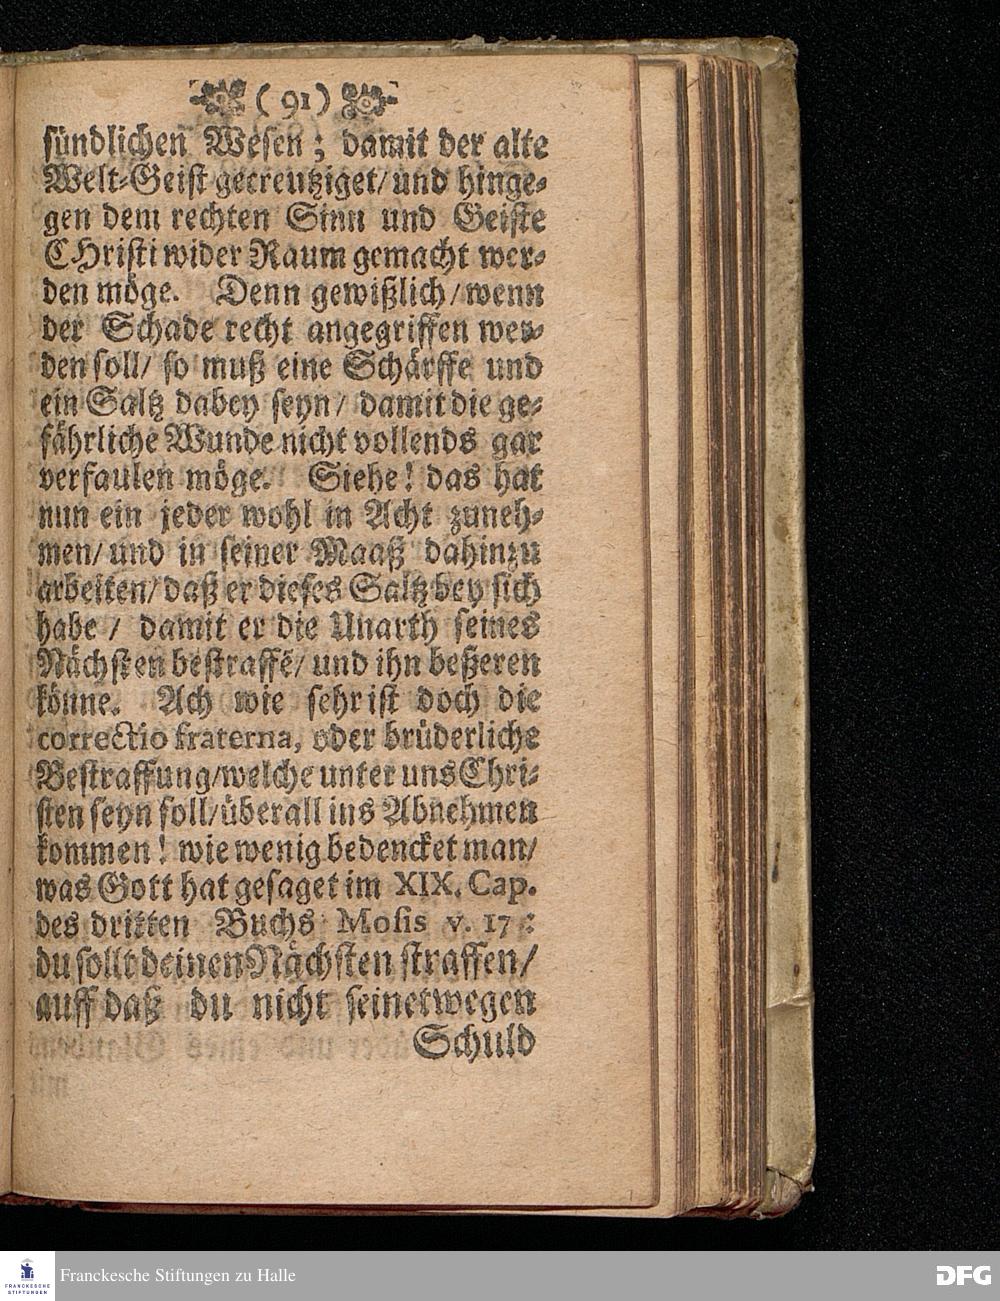 ( 91 )
sündlichen Wesen; damit der alte
Welt-Geist gecreutziget/ und hinge-
gen dem rechten Sinn und Geiste
CHristi wider Raum gemacht wer-
den möge. Denn gewißlich/ wenn
der Schade recht angegriffen wer-
den soll/ so muß eine Schärffe und
ein Saltz dabey seyn/ damit die ge-
fährliche Wunde nicht vollends gar
verfaulen möge. Siehe! das hat
nun ein jeder wohl in Acht zuneh-
men/ und in seiner Maaß dahinzu
arbeiten/ daß er dieses Saltz bey sich
habe / damit er die Unarth seines
Nächsten bestraffē/ und ihn beßeren
könne. Ach wie sehr ist doch die
correctio fraterna, oder brüderliche
Bestraffung/ welche unter uns Chri-
sten seyn soll/ überall ins Abnehmen
kommen! wie wenig bedencket man/
was Gott hat gesaget im XIX. Cap.
des dritten Buchs Mosis v. 17 :
du sollt deinen Nächsten straffen/
auff daß du nicht seinetwegen
Schuld
FRANCKESCHE
STIFTUNGEN
Franckesche Stiftungen zu Halle
DFG